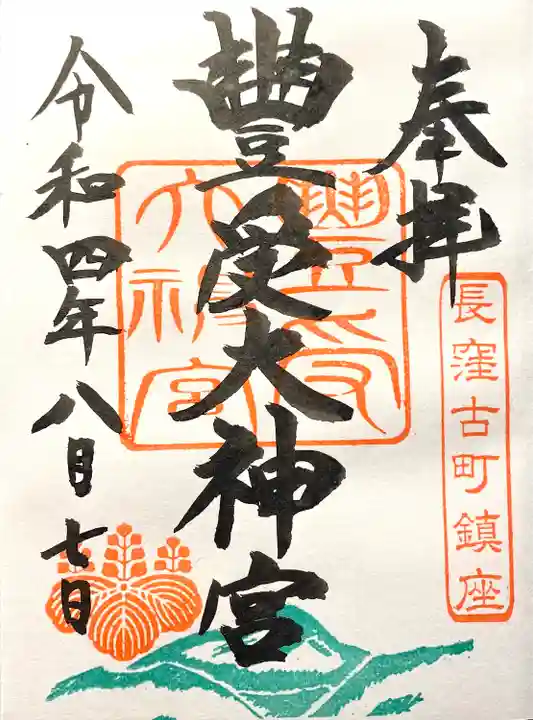 奉拝
長窪古町鎮座
豊受大神宮
豊受大神宮
令和四年八月七日